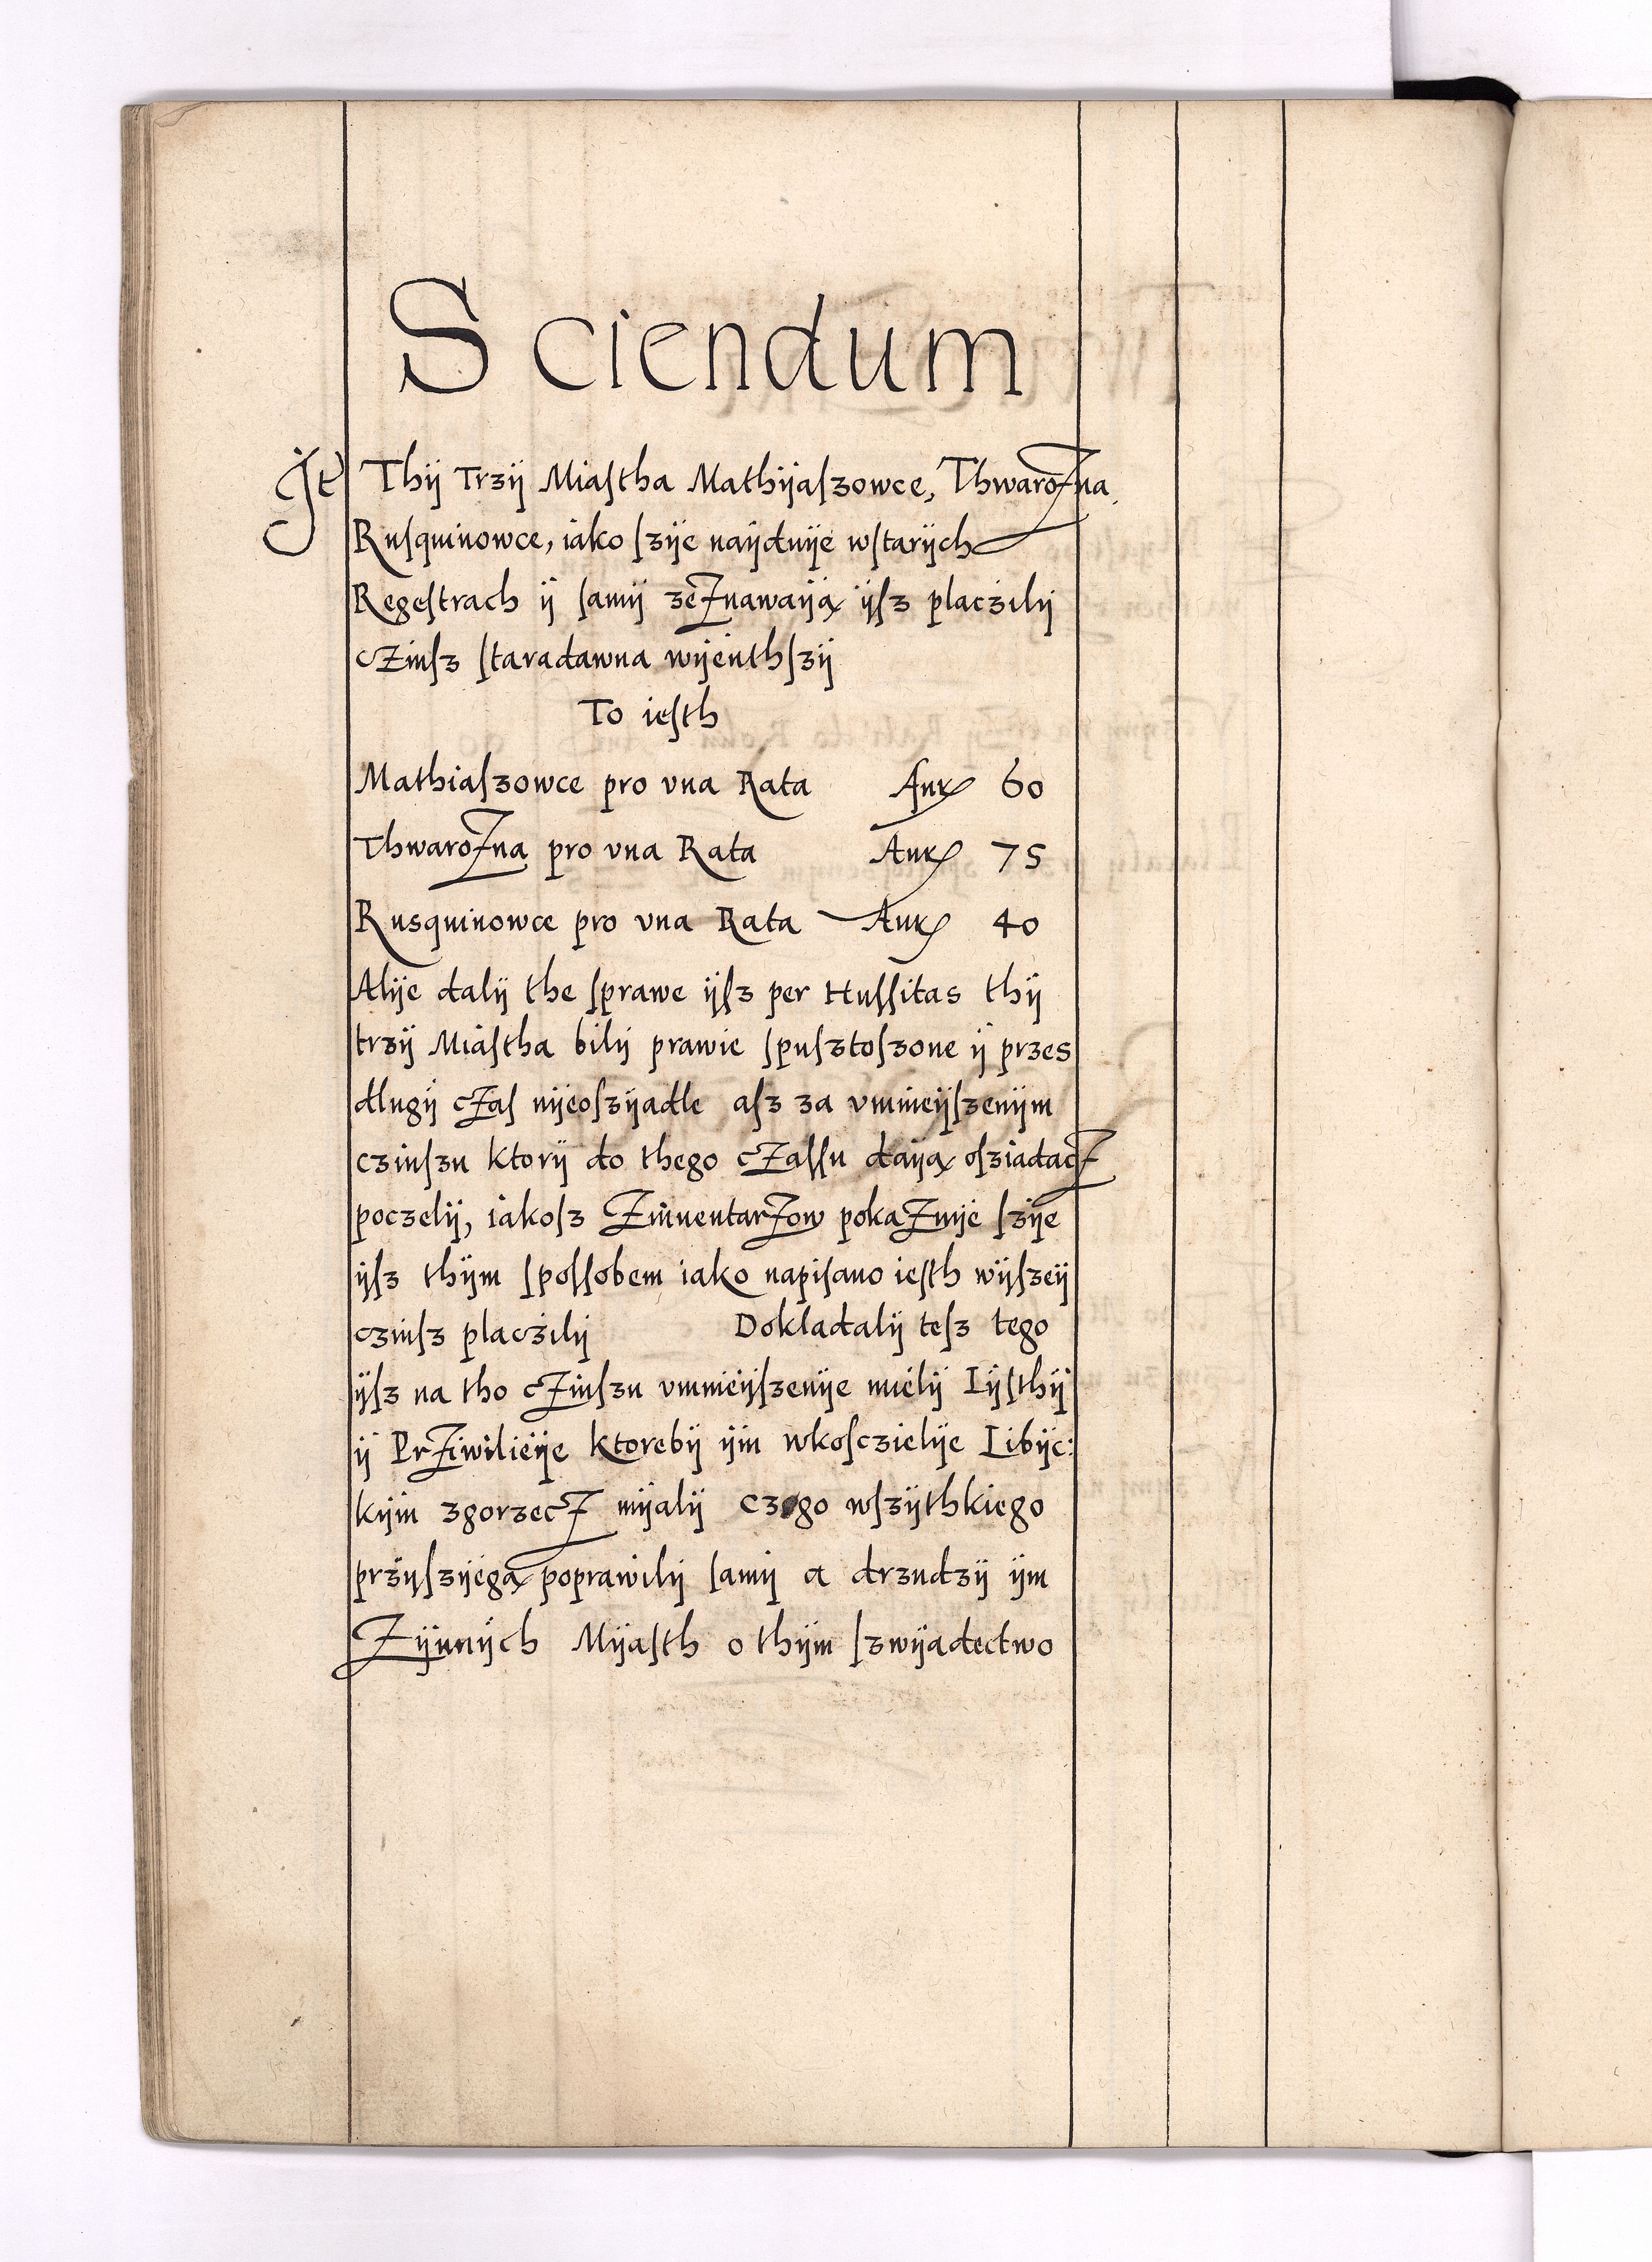 Sciendum
Jt Thÿ Trzÿ Miaſtha Mathÿaſzowce, Thwarozna
Ruſquinowce, iako ſzÿe naÿduÿe wſtarÿch
Regeſtrach ÿ ſamÿ zeznawaÿą ÿſz placzilÿ
czinſz ſtaradawna wÿenthſzÿ
To ieſth
Mathiaſzowce pro vna Rata Aur 60
Thwarozna pro vna Rata Aur 75
Rusquinowce pro vna Rata Aur 40
Alÿe dalÿ the ſprawe ÿſz per Huſſitas thÿ
trzÿ Miaſtha bilÿ prawie ſpuſztoſzone ÿ przes
dlugÿ czaſ nÿeoſzÿadle aſz za vmnieÿſzenÿm
czinſzu ktorÿ do thego czaſſu daÿą oſziadacz
poczelÿ, iakoſz Zinuentarzow pokazuÿe ſzÿe
ÿſz thÿm ſpoſſobem iako napiſano ieſth wÿſzeÿ
czinſz placzilÿ Dokladalÿ teſz tego
ÿſz na tho czinſzu vmnieÿſzenÿe mielÿ Lÿſthÿ
ÿ Prziwilieÿe ktorebÿ ÿm wkoſczielÿe Libÿc:
kÿm zgorzecz mÿalÿ czego wſzÿthkiego
przÿſzÿegą poprawilÿ ſamÿ a drzudzÿ ÿm
Zÿnnÿch Mÿaſth o thÿm ſzwÿadectwo